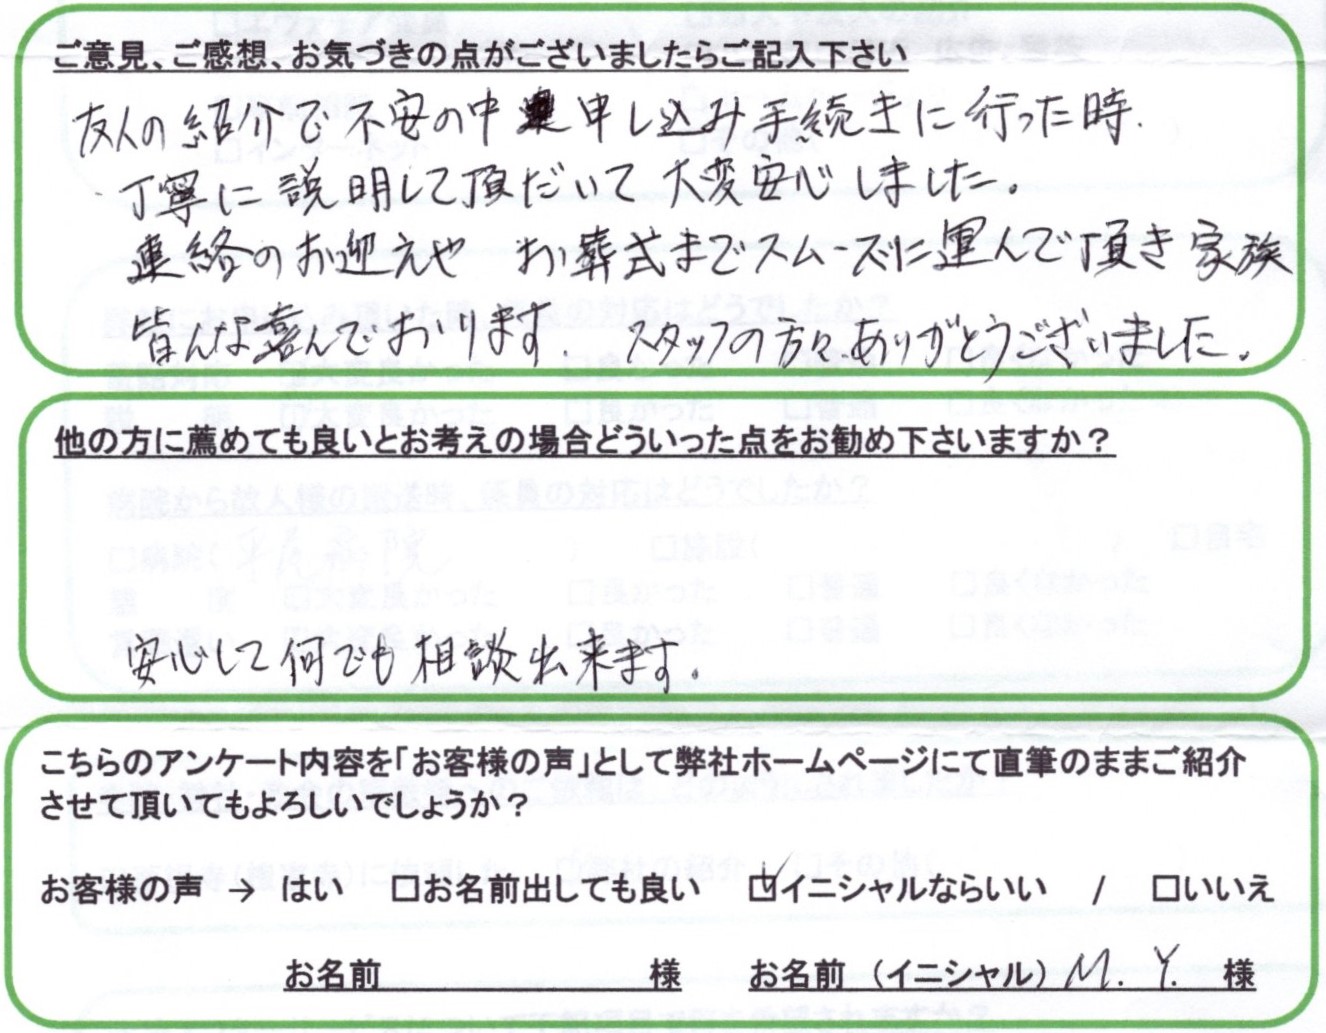 ご意見、ご感想、お気づきの点がございましたらご記入下さい
友人の紹介で不安の中申し込み手続きに行った時.
丁寧に説明して頂だいて大変安心しました。
連絡のお迎えや お葬式までスムーズに運んで頂き家族
皆んな喜んでおります. スタッフの方々ありがとうございました。
他の方に薦めても良いとお考えの場合どういった点をお勧め下さいますか？
安心して何でも相談出来ます.
こちらのアンケート内容を「お客様の声」として弊社ホームページにて直筆のままご紹介
させて頂いてもよろしいでしょうか？
お客様の声 → はい □お名前出しても良い ☑イニシャルならいい / □いいえ
お名前 様 お名前 （イニシャル） M. Y. 様